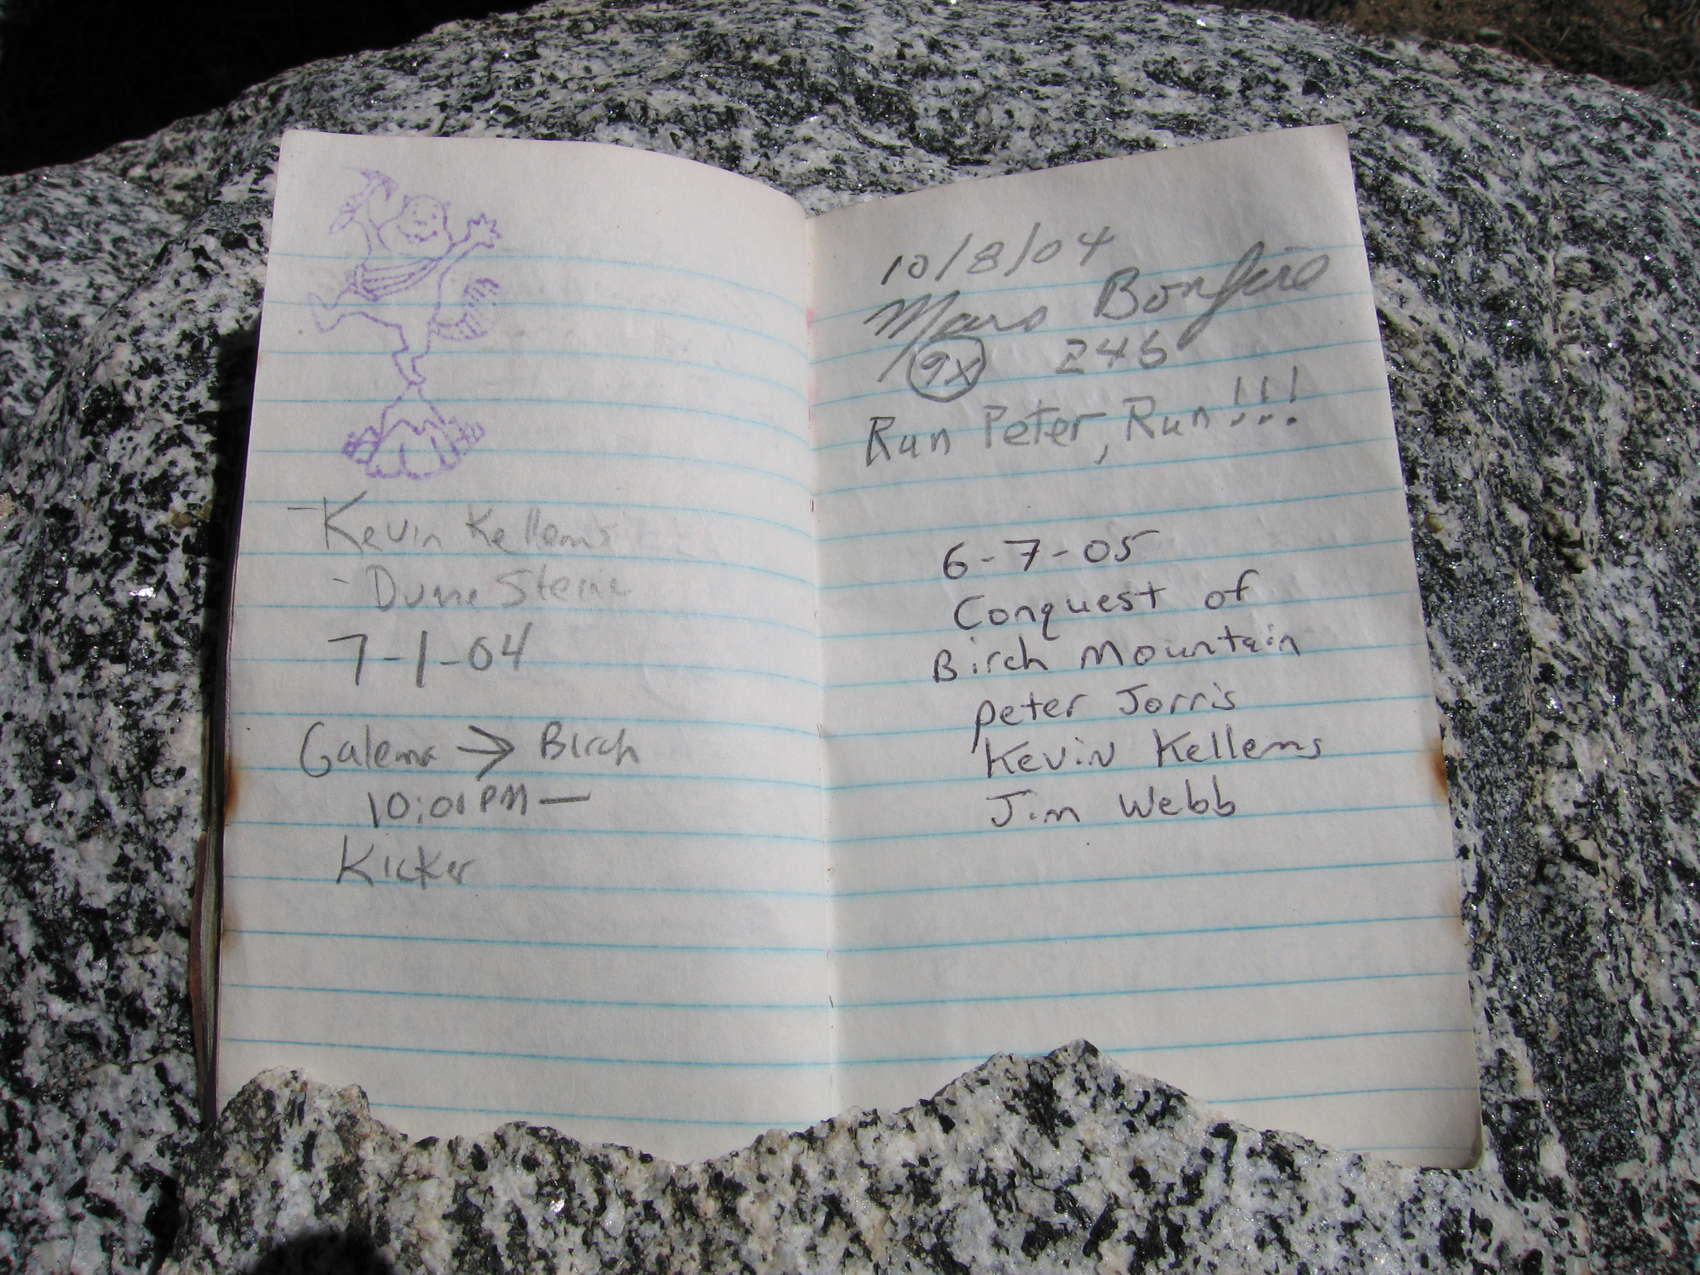 - Kevin Kellems
- Dune Steine
7-1-04
Galena → Birch
10:01 PM —
Kicker
10/8/04
Mars Bonfire
9X 246
Run Peter, Run!!!
6-7-05
Conquest of
Birch Mountain
Peter Jorris
Kevin Kellems
Jim Webb